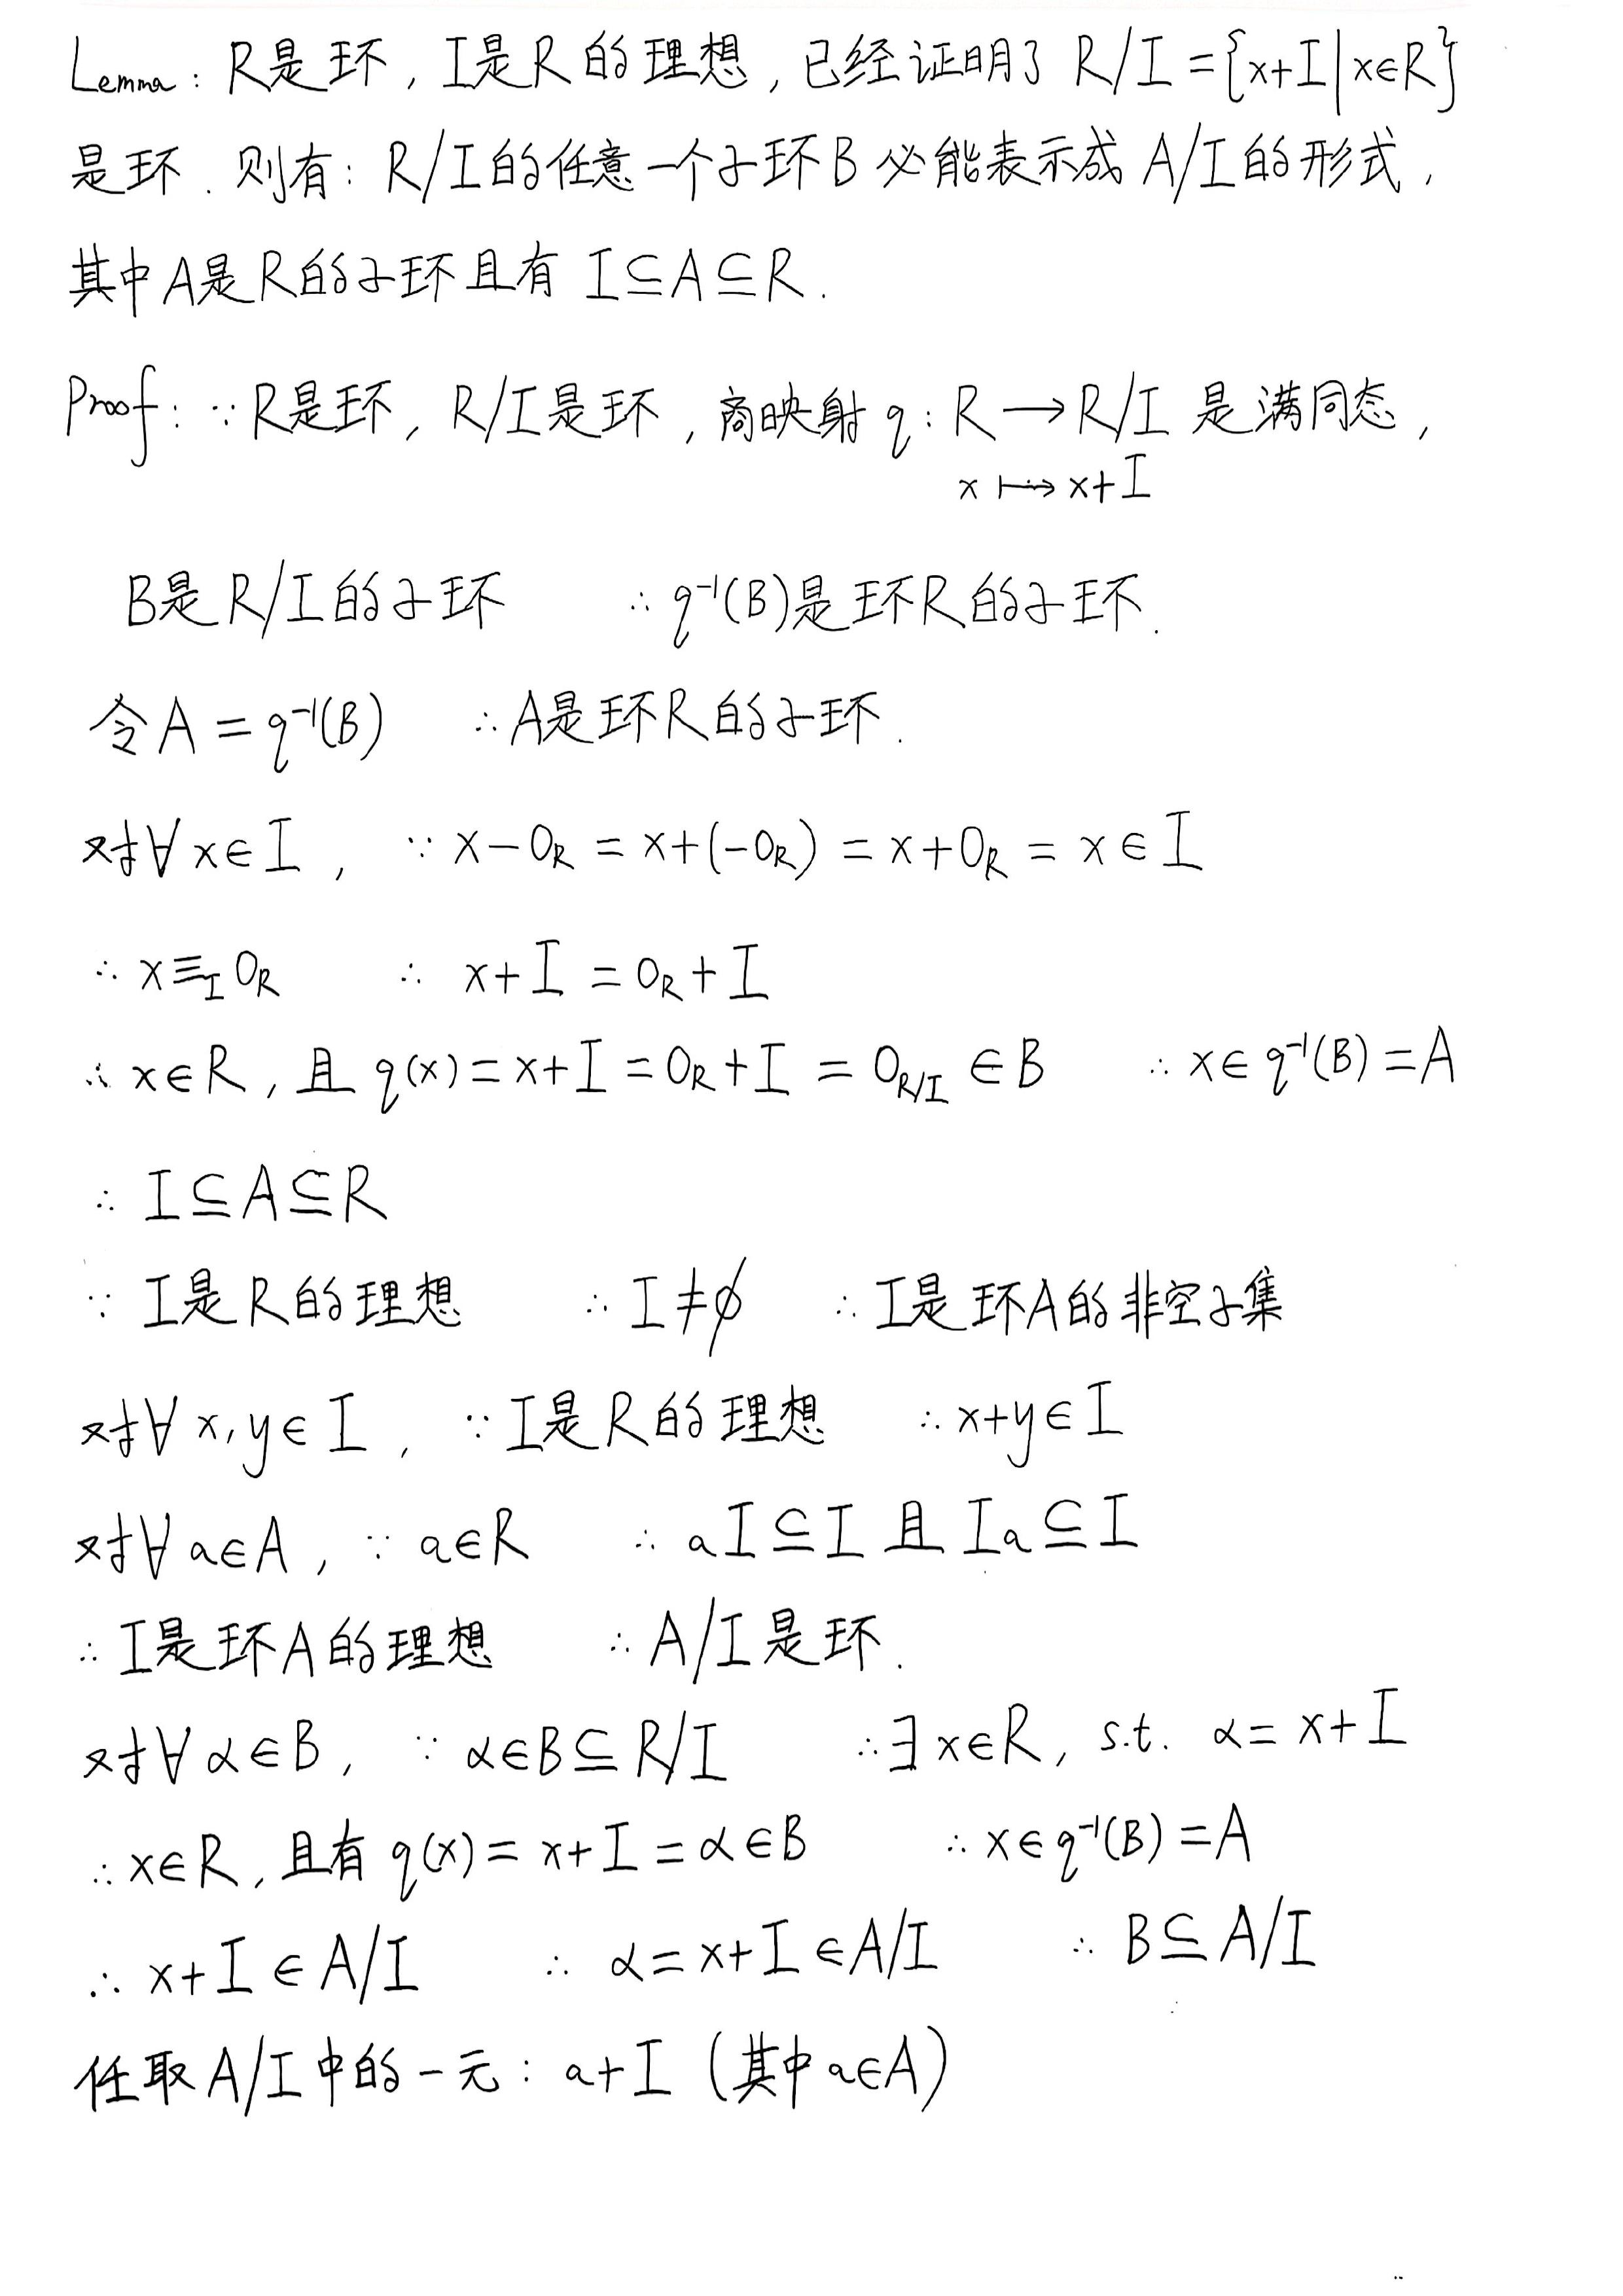 Lemma: R是环, I是R的理想, 已经证明了 R/I={x+I|x∈R}
是环. 则有: R/I的任意一个子环B必能表示成 A/I的形式,
其中A是R的子环且有 I⊆A⊆R.
Proof: ∵R是环, R/I是环, 商映射 q: R→R/I 是满同态,
x↦x+I
B是R/I的子环 ∴q⁻¹(B)是环R的子环.
令A=q⁻¹(B) ∴A是环R的子环.
对∀x∈I, ∵x-0_R=x+(-0_R)=x+0_R=x∈I
∴x≡_I 0_R ∴x+I=0_R+I
∴x∈R, 且 q(x)=x+I=0_R+I=0_{R/I}∈B ∴x∈q⁻¹(B)=A
∴I⊆A⊆R
∵I是R的理想 ∴I≠∅ ∴I是环A的非空子集
对∀x,y∈I, ∵I是R的理想 ∴x+y∈I
对∀a∈A, ∵a∈R ∴aI⊆I且Ia⊆I
∴I是环A的理想 ∴A/I是环.
对∀α∈B, ∵α∈B⊆R/I ∴∃x∈R, s.t. α=x+I
∴x∈R, 且有 q(x)=x+I=α∈B ∴x∈q⁻¹(B)=A
∴x+I∈A/I ∴α=x+I∈A/I ∴B⊆A/I
任取A/I中的一元: a+I (其中a∈A)